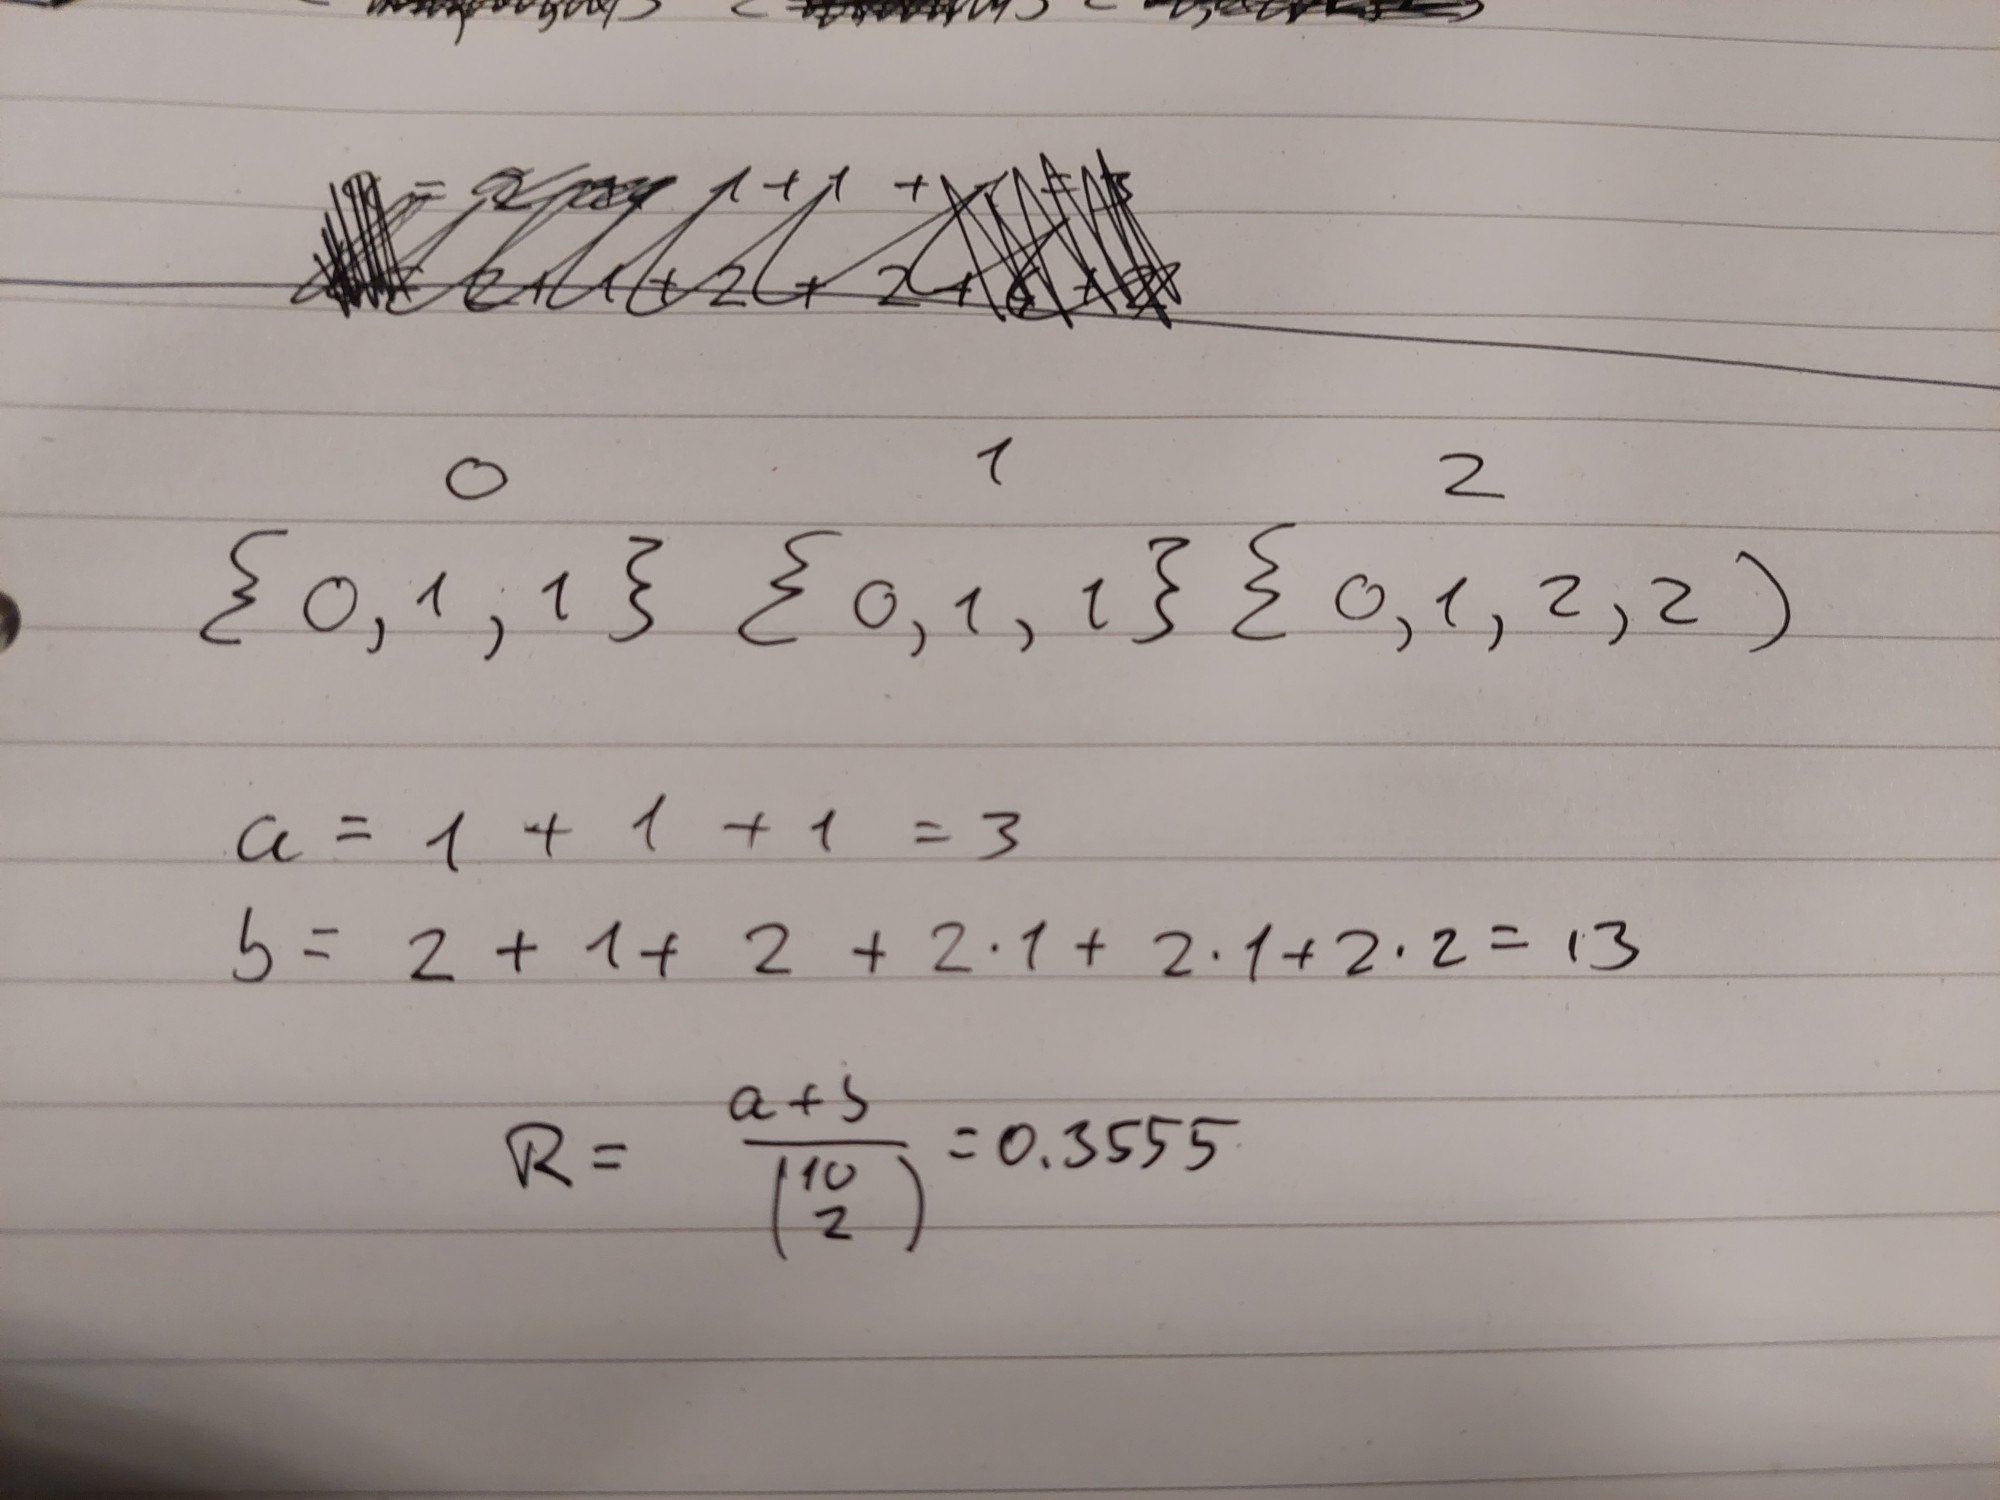 = 1 + 1 +
2+1+2+2+
0 1 2
{0,1,1} {0,1,1} {0,1,2,2)
a = 1 + 1 + 1 = 3
b = 2 + 1 + 2 + 2·1 + 2·1 + 2·2 = 13
R = a+b / (10 2) = 0.3555